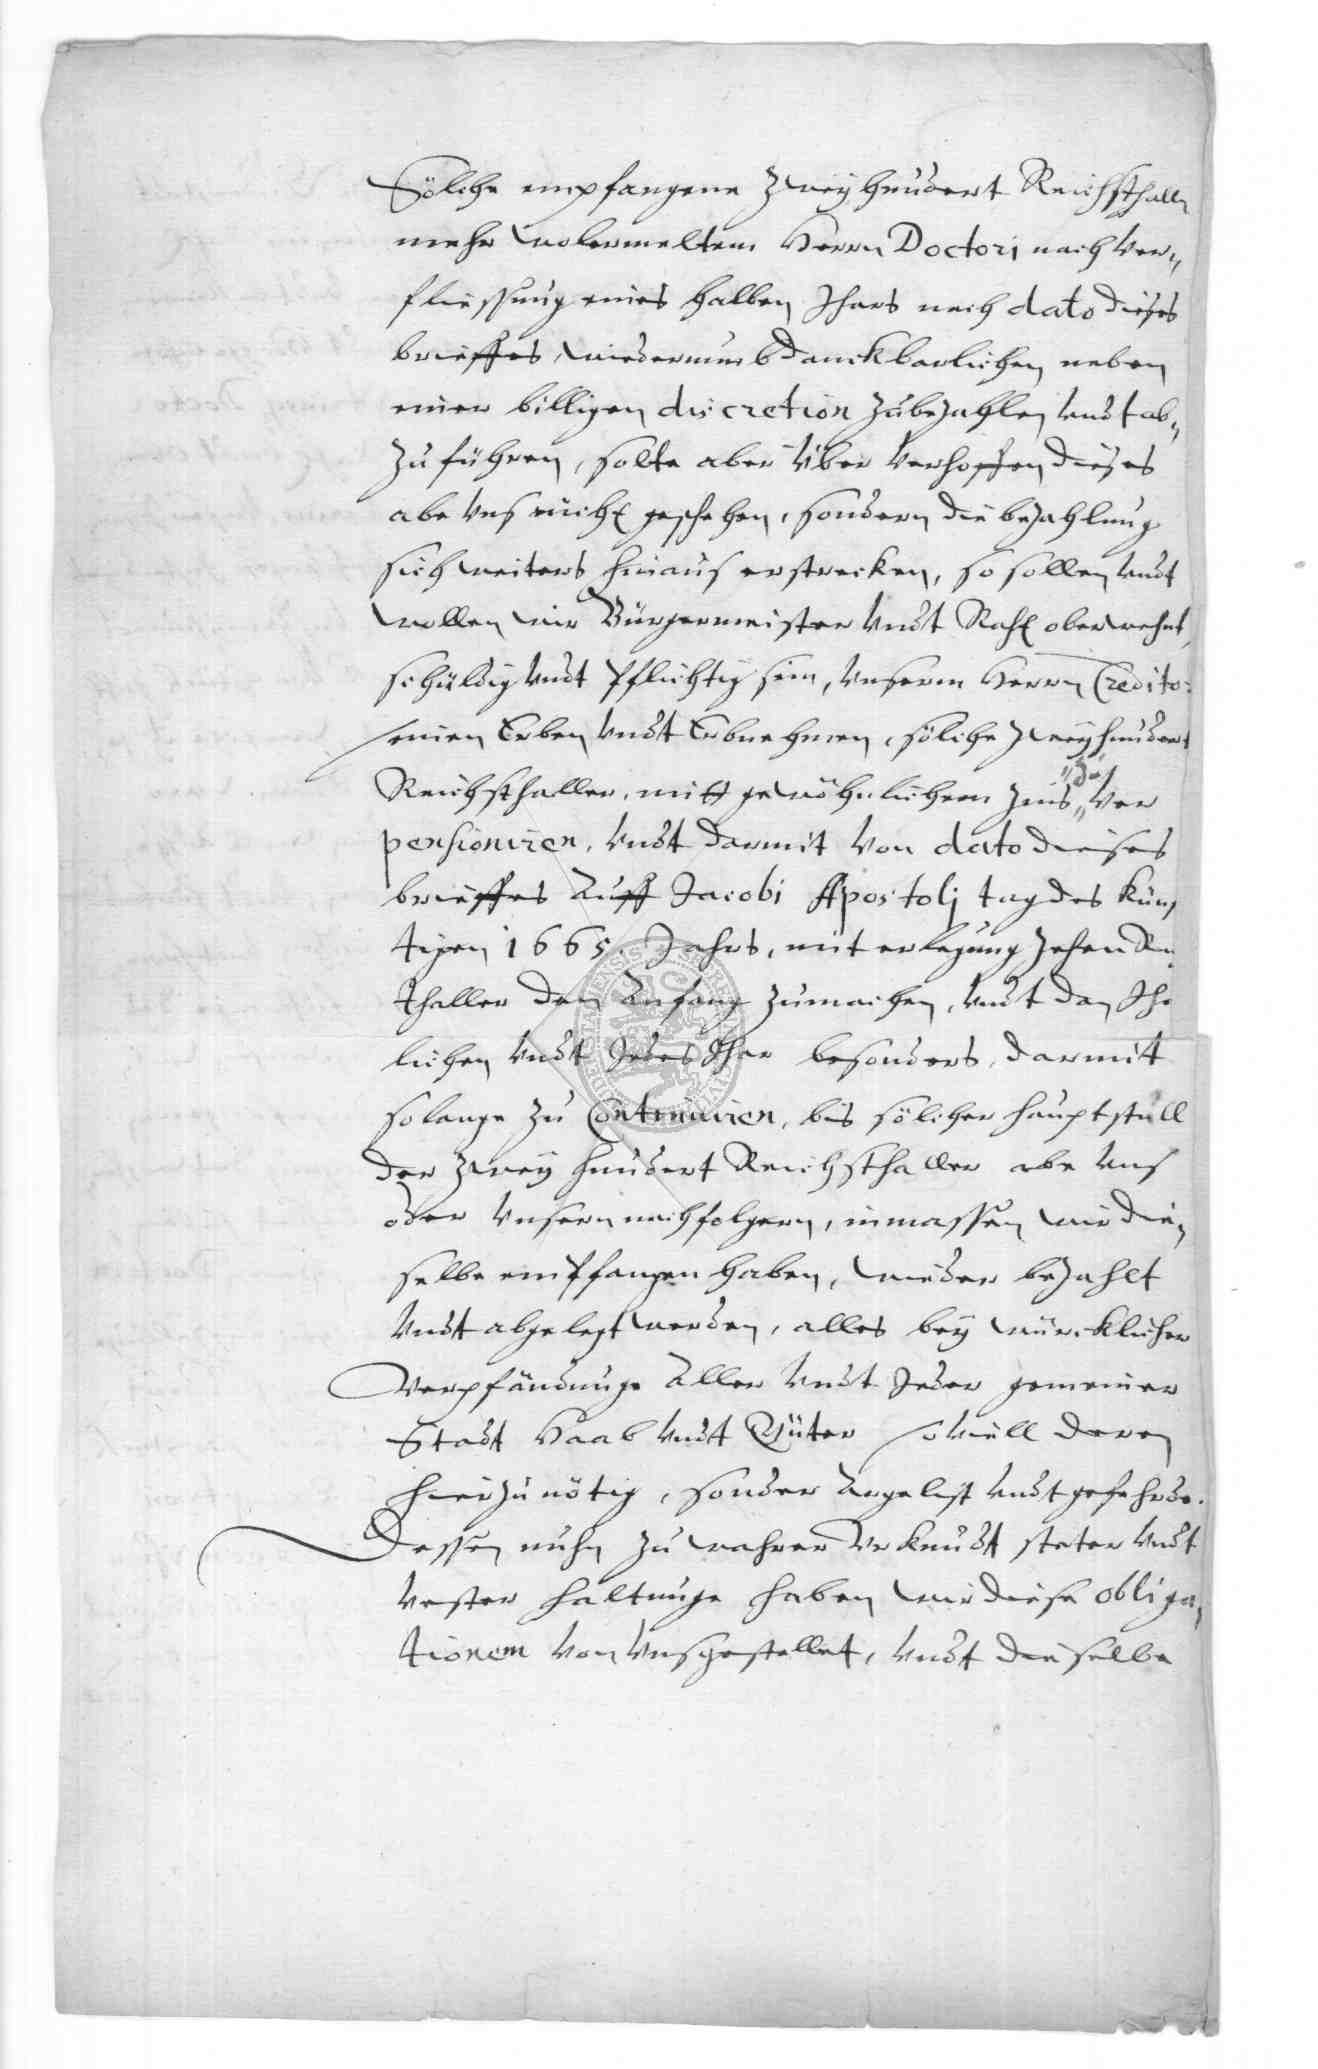 Sölche empfangene zweyhundert Reichsthall
mehr wolermeltem Herrn Doctori nach Ver„
fliessung eines halben Jhars nach dato dieses
brieffes, wiederumb danckbarlichen neben
einer billigen discretion zubezahlen undt ab„
zuführen, solte aber über verhoffen dieses
abe uns nicht geschehen, sondern die bezahlung
sich weiters hinaus erstrecken, so sollen undt
wollen wir Bürgermeister undt Raht oberwehnt
schüldig undt Pflichtig sein, unserm Herrn Credito:
seinen Erben undt Erbnehmen, sölche zweyhundert
Reichsthaller, mitt gewöhnlichem zins „zu„ ver
pensioniren, undt darmit von dato dieses
brieffes Auff Jacobi Apostolj tag des Künf
tigen 1665. Jahrs, mit erlegung zehen Rei
thaller den Anfang zumachen, undt dan Jhe
lichen undt Jedes Jhar besonders, darmit
solange zu Continuiren, bis sölcher hauptstull
der zwey hundert Reichsthaller abe uns
oder unsern nachfolgern, inmassen wir die„
selbe empfangen haben, wieder bezahlt
undt abgelegt werden, alles bey würcklicher
Verpfändunge Aller undt Jeder gemeiner
Stadt Haab undt Güter so viell deren
hierzu nötig, sonder Argelist undt gefehrde.
Dessen nuhn zu wahrer Urkundt steter undt
vester haltunge haben wir diese obliga„
tionem von uns gestellet, undt dieselbe